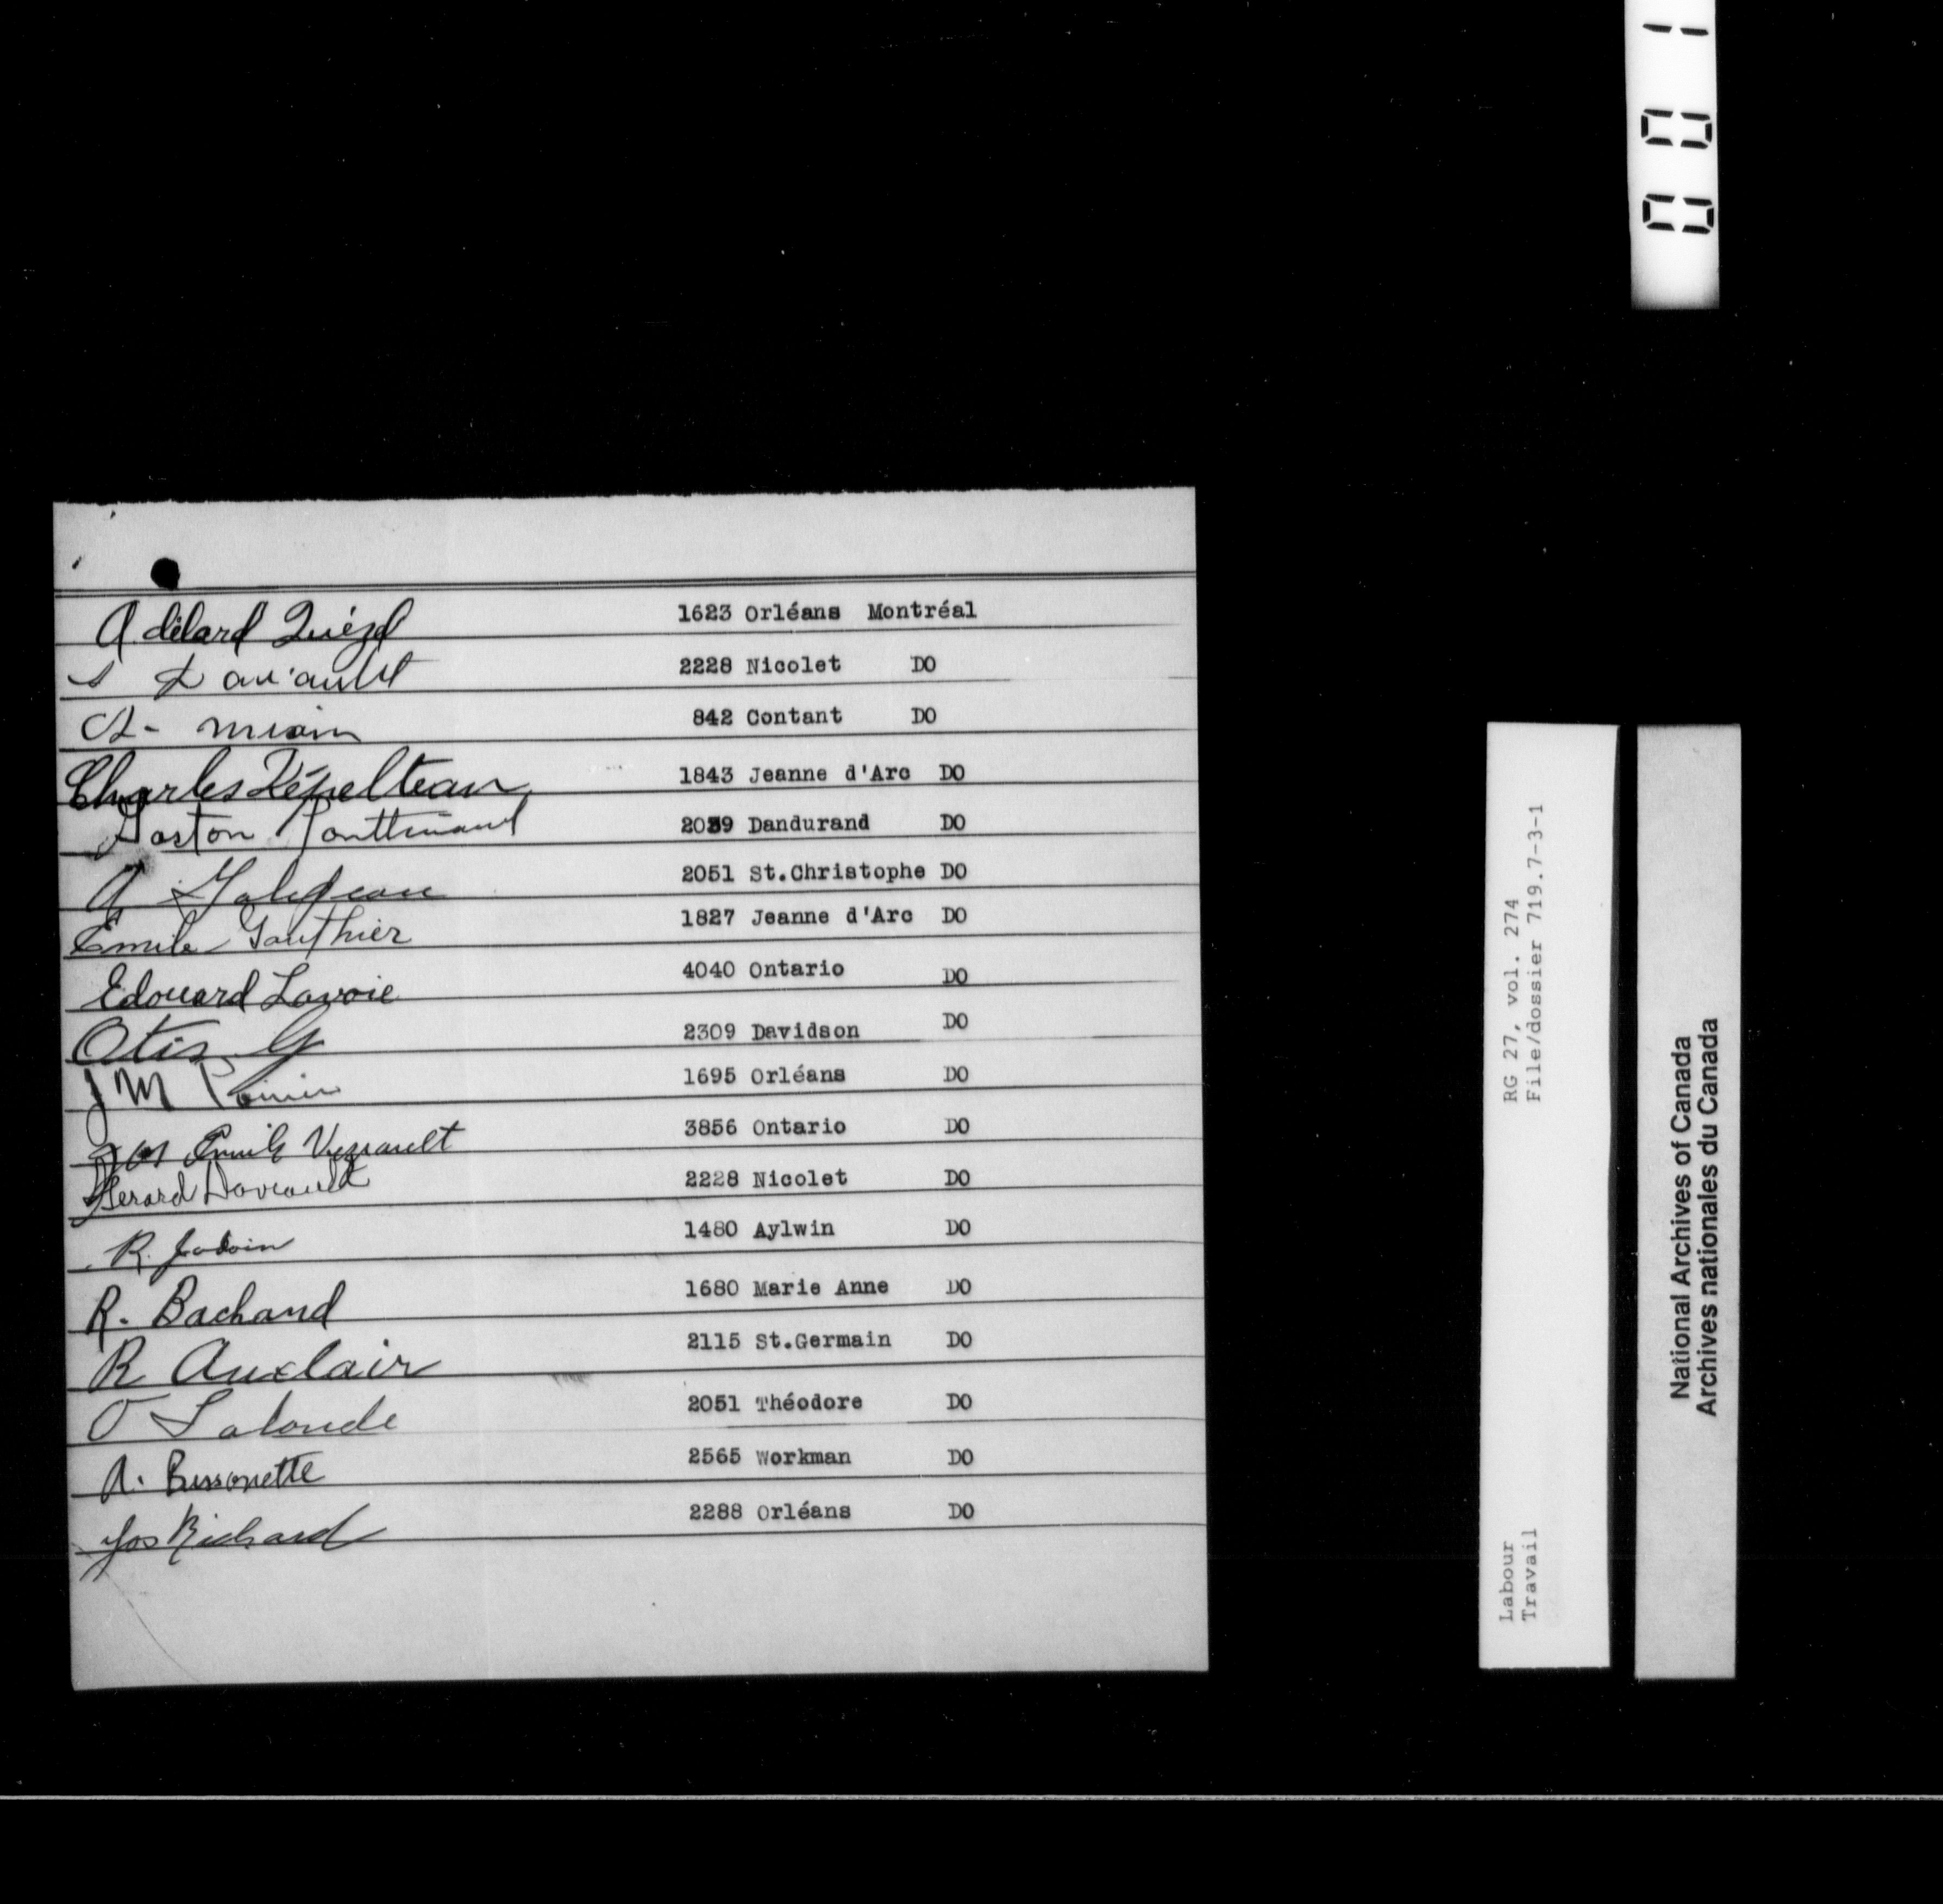 Adélard 1623 Orléans Montréal
2228 Nicolet DO
842 Contant DO
Charles 1843 Jeanne d'Arc DO
Gaston 2039 Dandurand DO
A 2051 St.Christophe DO
Emile Gauthier 1827 Jeanne d'Arc DO
Edouard Lavoie 4040 Ontario DO
Otis G 2309 Davidson DO
J M Poirier 1695 Orléans DO
Emile 3856 Ontario DO
Gerard 2228 Nicolet DO
R. Jodoin 1480 Aylwin DO
R. Bachand 1680 Marie Anne DO
R Auclair 2115 St.Germain DO
O Lalonde 2051 Théodore DO
A. Bissonette 2565 Workman DO
Jos Richard 2288 Orléans DO
001
Labour RG 27, vol. 274
Travail File/dossier 719.7-3-1
National Archives of Canada
Archives nationales du Canada